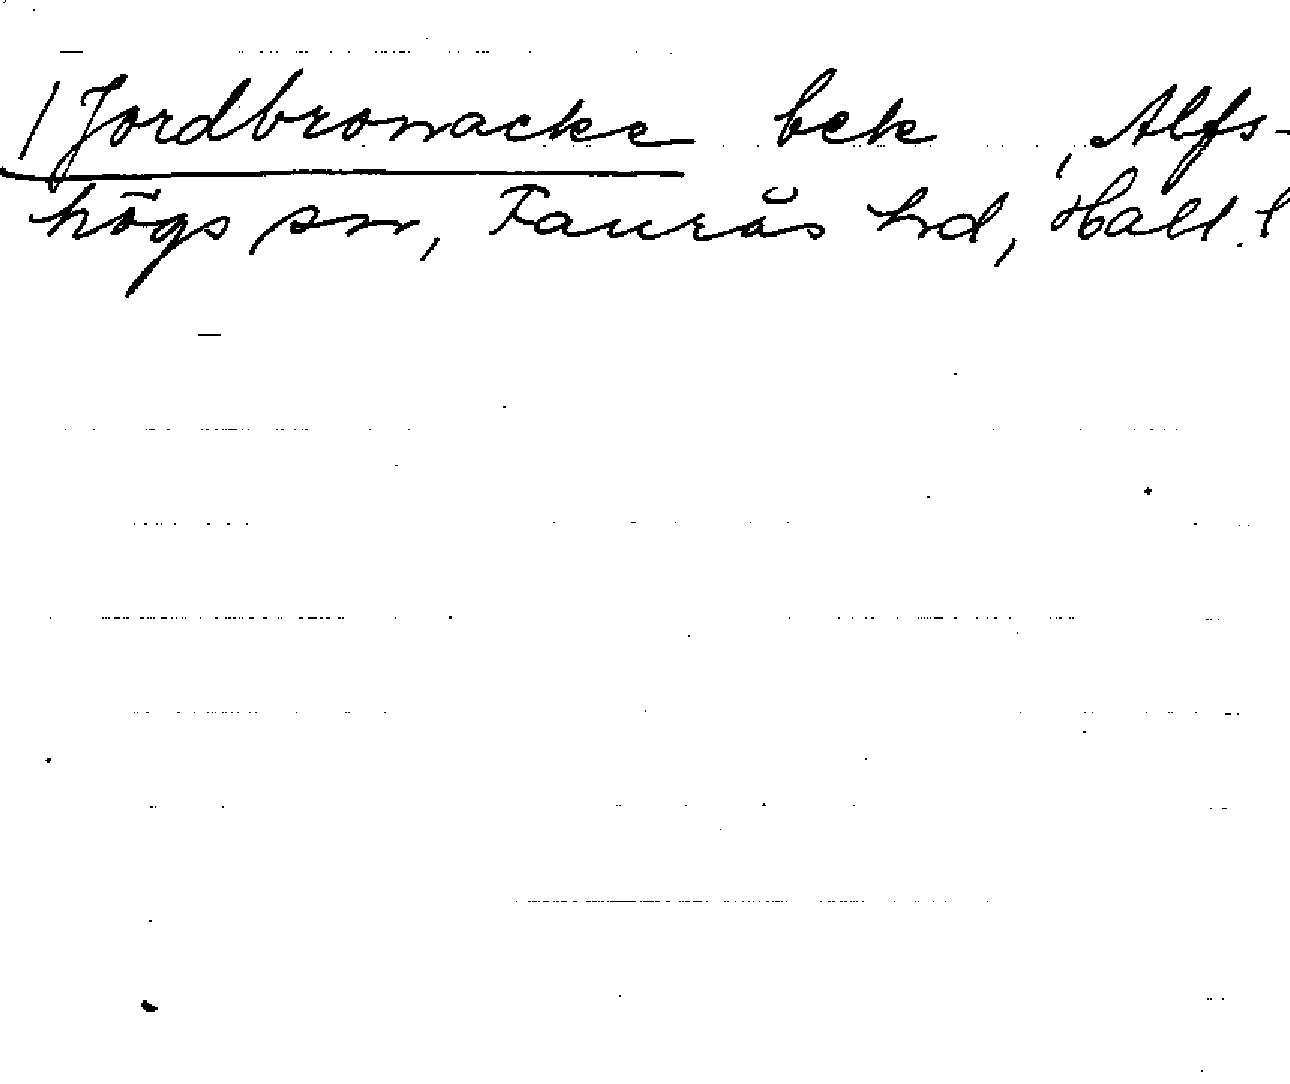 /Jordbronacke bek , Alfs-
högs sn, Faurås hd, Hall. l